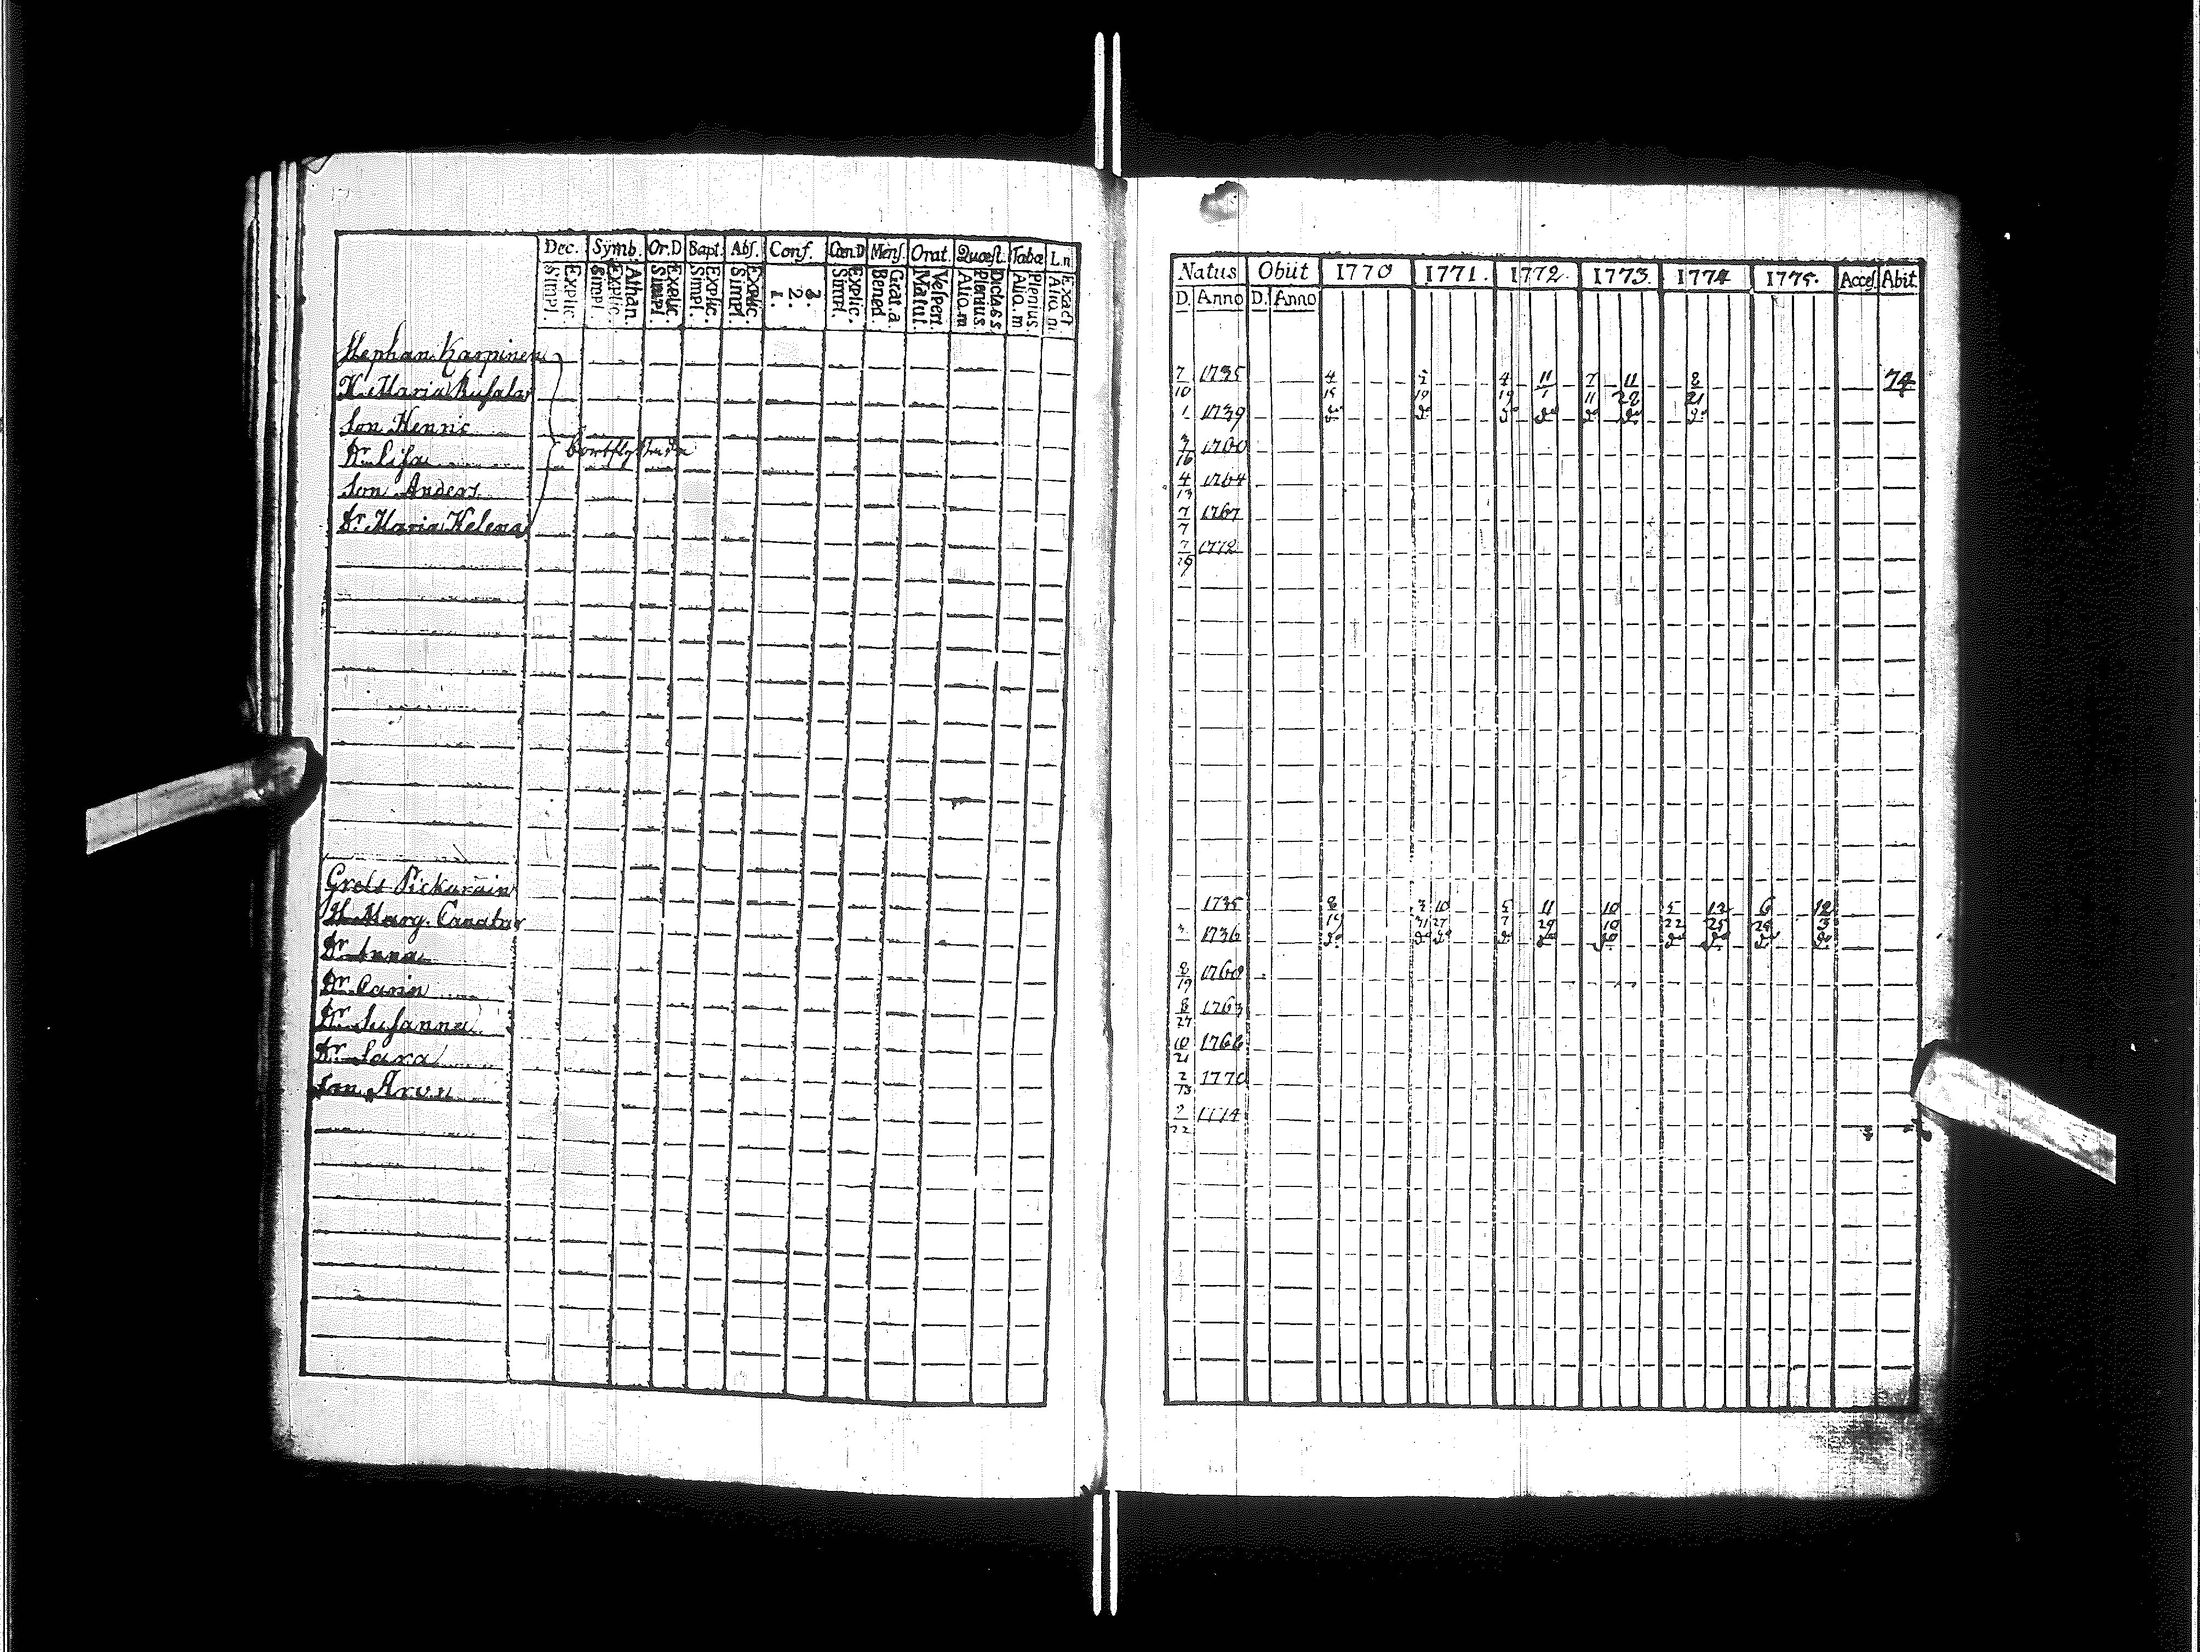 Dec. Symb. Or.D Bapt. Abs. Conf. Can.D Mens. Orat. Quæst. Taba L.n
Simpl. Explic. Simpl. Explic. Athan. Simpl. Explic. Simpl. Explic. Simpl. Explic. 1. 2. 3. Simpl. Explic. Bened. Grat.a Matut. Vespert. Alio.m Plenius. Dicta SS Alio.m Plenius. Alio m Exact
Stephan Karpinen
H. Maria
Son Henric
Dr Lisa
Son Anders
Dr Maria Helena
Grels Pickarain
H. Marg.
Dr Anna
Dr Carin
Dr Susanna
Dr Sara
Son Arvu
Natus Obiit 1770 1771. 1772. 1773. 1774 1775. Acces Abit
D. Anno D. Anno
7/10 1735 4/15 11/1 7/11 11/28 8/21 74
1 1739 do do do do do do do
3/16 1760
4/13 1764
7/7 1767
7/29 1772
1735 8/19 3/31 10/27 5/7 11/29 10/10 5/22 12/25 6 12/3
3 1736 do do do do do do do do do do
8/19 1760
8/27 1763
10/21 1766
2/13 1770
2/22 1774